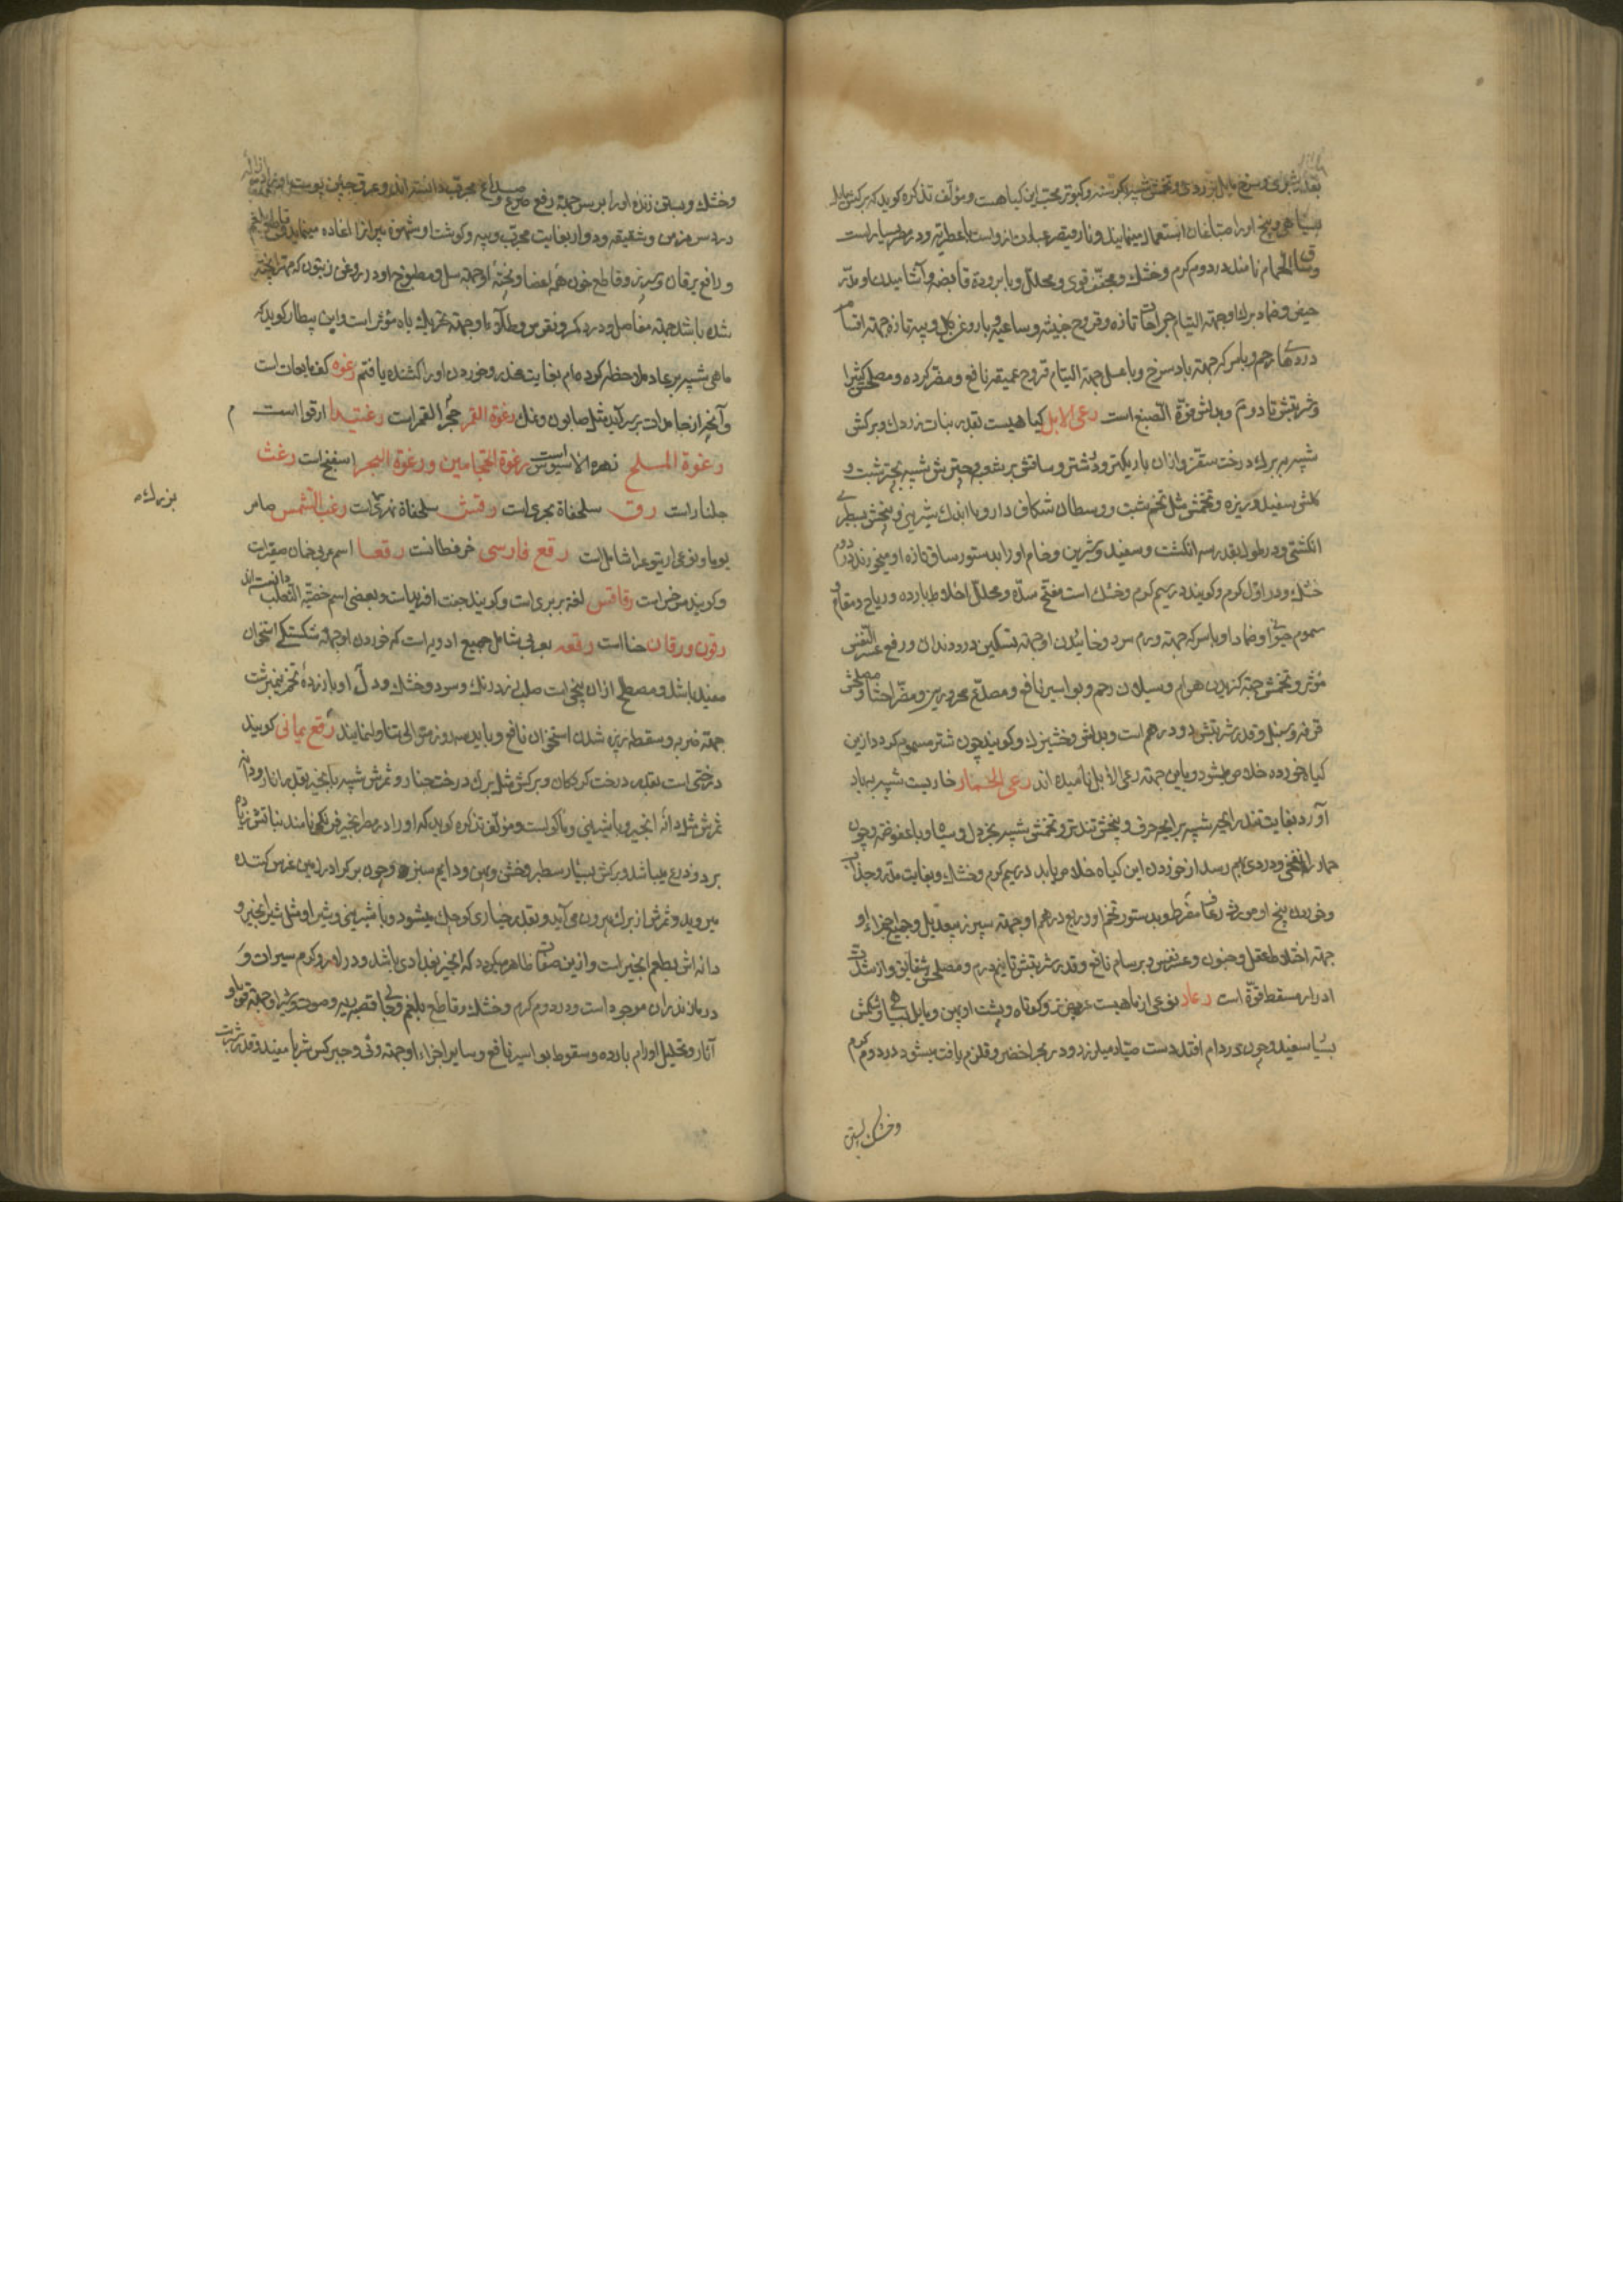 بقدر شبری و سرخ مایل بزردی و تخمش شبیه بکرسنه و کبوتر محب این کیاهست و مؤلف تذکره کوید که برکش مایل
بسیاهی و بیخ او را صباغان استعمال مینمایند و
و ساق الحمام نامند در دوم کرم و خشک و مجفف قوی و محلل و با برودة قابضه و آشامیدن او مدر
حیض و ضماد برک او جهته التیام جراحات تازه و قروح خبیثه و ساعیه و با روغن کل و پیه تازه جهته اقسام
دردهای رحم و با سرکه جهته باد سرخ و با عسل جهته التیام قروح عمیقه نافع و مضر کرده و مصلحش کثیرا
و شربتش تا دو درم و بدلش فوة الصبغ است رعی الابل کیاهیست بقدر نبات زردک و برکش
شبیه ببرک درخت سقز و از ان باریکتر و درشتر و ساقش پر شعب و چترش شبیه بچتر شبت و
کلش سفید و ریزه و تخمش مثل تخم شبت و وسط ان شکاف دار و با اندک شیرینی و بیخش بسطبری
انکشتی و در طول بقدر سه انکشت و سفید و شیرین و خام او را بدستور ساق تازه او میخورند در دوم
خشک و در اول کرم و کویند در سیم کرم و خشک است مفتح سده و محلل اخلاط بارده و ریاح و مقاوم
سموم حیوانی و ضماد او با سرکه جهته ورم سرد و خائیدن او جهته تسکین درد دندان و رفع عسر النفس
مؤثر و تخمش جهته کزیدن هوام و سیلان رحم و بواسیر نافع و مصدع محرورین و مضر احشا و مصلحش
قرفه و سنبل و قدر شربتش دو درهم است و بدلش وخشیزک و کویند چون شتر مسموم کردد از این
کیاه خورده خلاص میشود و باین جهته رعی الابل نامیده اند رعی الحمار خاریست شبیه بباد
آورد بغایت تند رایحه شبیه برایحه حرف و بیخش تندتر و تخمش شبیه بخردل و سیاه و با عفوصه و چون
حمار را نفخی و دردی بهم رسد از خوردن این کیاه خلاص یابد در سیم کرم و خشک و بغایت مدر و جذاب
و خوردن بیخ او مورث رعاف مفرط و بدستور تخم او و ربع درهم او جهته سپرز بیعدیل و جمیع اجزاء او
جهته اختلاط عقل و جنون و عسر نفس و برسام نافع و قدر شربتش تا نیم درم و مصلحش شقایق و از شدت
ادرار مسقط قوة است رعاد نوعی از ماهیست عریض و کوتاه و پشت او پهن و مایل بسیاهی و شکمش
بسیار سفید و چون در دام افتد دست صیاد میلرزد و در بحر اخضر و قلزم یافت میشود در دوم کرم
وخشک بستن
و خشک و بستن زنده او را بر سر جهته رفع صرع و صداع مجرب دانسته اند و عرق چین پوست او جهته ازاله
درد سر مزمن و شقیقه و دوار بغایت مجرب و پیه و کوشت او شهوة پیران را اعاده مینماید و قاطع بلغم
و رافع یرقان و سپرز و قاطع خون همه اعضا و پخته او جهته سل و مطبوخ او در روغن زیتون که مهرا پخته
شده باشد جهته مفاصل و درد کمر و نقرس و طلاء او جهته تحریک باه مؤثر است و ابن بیطار کوید که
ماهی شبیه برعاد ملاحظه کردم بغایت مخدر و خوردن او را کشنده یافتم رغوه کف مایعات است
و آنچه از جامدات برآید مثل صابون و نمک رغوة القمر حجر القمر است رغتیدا ارقوا است
رغوة الملح زهرة الاسیوس است رغوة الحجامین و رغوة البحر اسفنج است رغث
جلنار است رق سلحفاة بحری است رقش سلحفاة نهری است رغب الشمس صامر
یوما و نوعی از یتوع را شامل است رقع فارسی خرفطانست رقعا اسم عربی خان صیقر است
و کویند سرخس است رقاقس لغة بربری است و کویند جفت افرید است و بعضی اسم خصیة الثعلب دانسته اند
رقون و رقان حنا است رقعه بعربی شامل جمیع ادویه است که خوردن او جهته شکستکی استخوان
مفید باشد و مصطلح از ان بیخی است صلب زرد رنک و سرد و خشک و دو مثقال او با زرده تخم نیمبرشت
جهته ضربه و سقطه و ریزه شدن استخوان نافع و باید سه روز متوالی تناول نمایند رقع یمانی کویند
درختی است بقدر درخت کردکان و برکش مثل برک درخت چنار و ثمرش شبیه بانجیر بقدر انار و دانه
ثمرش مثل دانه انجیر و با شیرینی و ماکولست و مؤلف تذکره کوید که او را در مصر انجیر فرنکی نامند نباتش زیاده
بر دو ذرع میباشد و برکش بسیار سطبر و خشن و پهن و دایم سبز و چون برک او را در زمین غرس کنند
میروید و ثمرش از برک بیرون می آید و بقدر خیاری کوچک میشود و با شیرینی و شیر او مثل شیر انجیر و
دانه اش بطعم انجیر است و از این صفات ظاهر میکردد که انجیر بغدادی باشد و در لاهور و کرم سیرات و
در مازندران موجود است و در دوم کرم و خشک و قاطع بلغم و جهته قصبه ریه و صوت و شیر او جهته قوبا و
آثار و تحلیل اورام بارده و سقوط بواسیر نافع و سایر اجزاء او جهته وثی و جبر کسر شربا مفید و قدر شربت